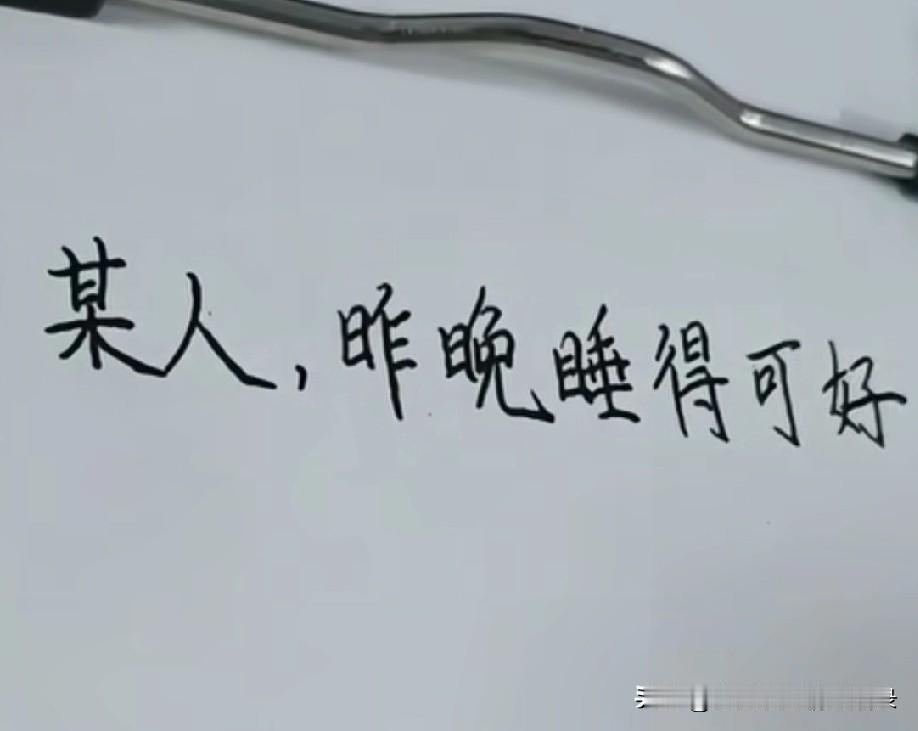 某人,昨晚睡得可好